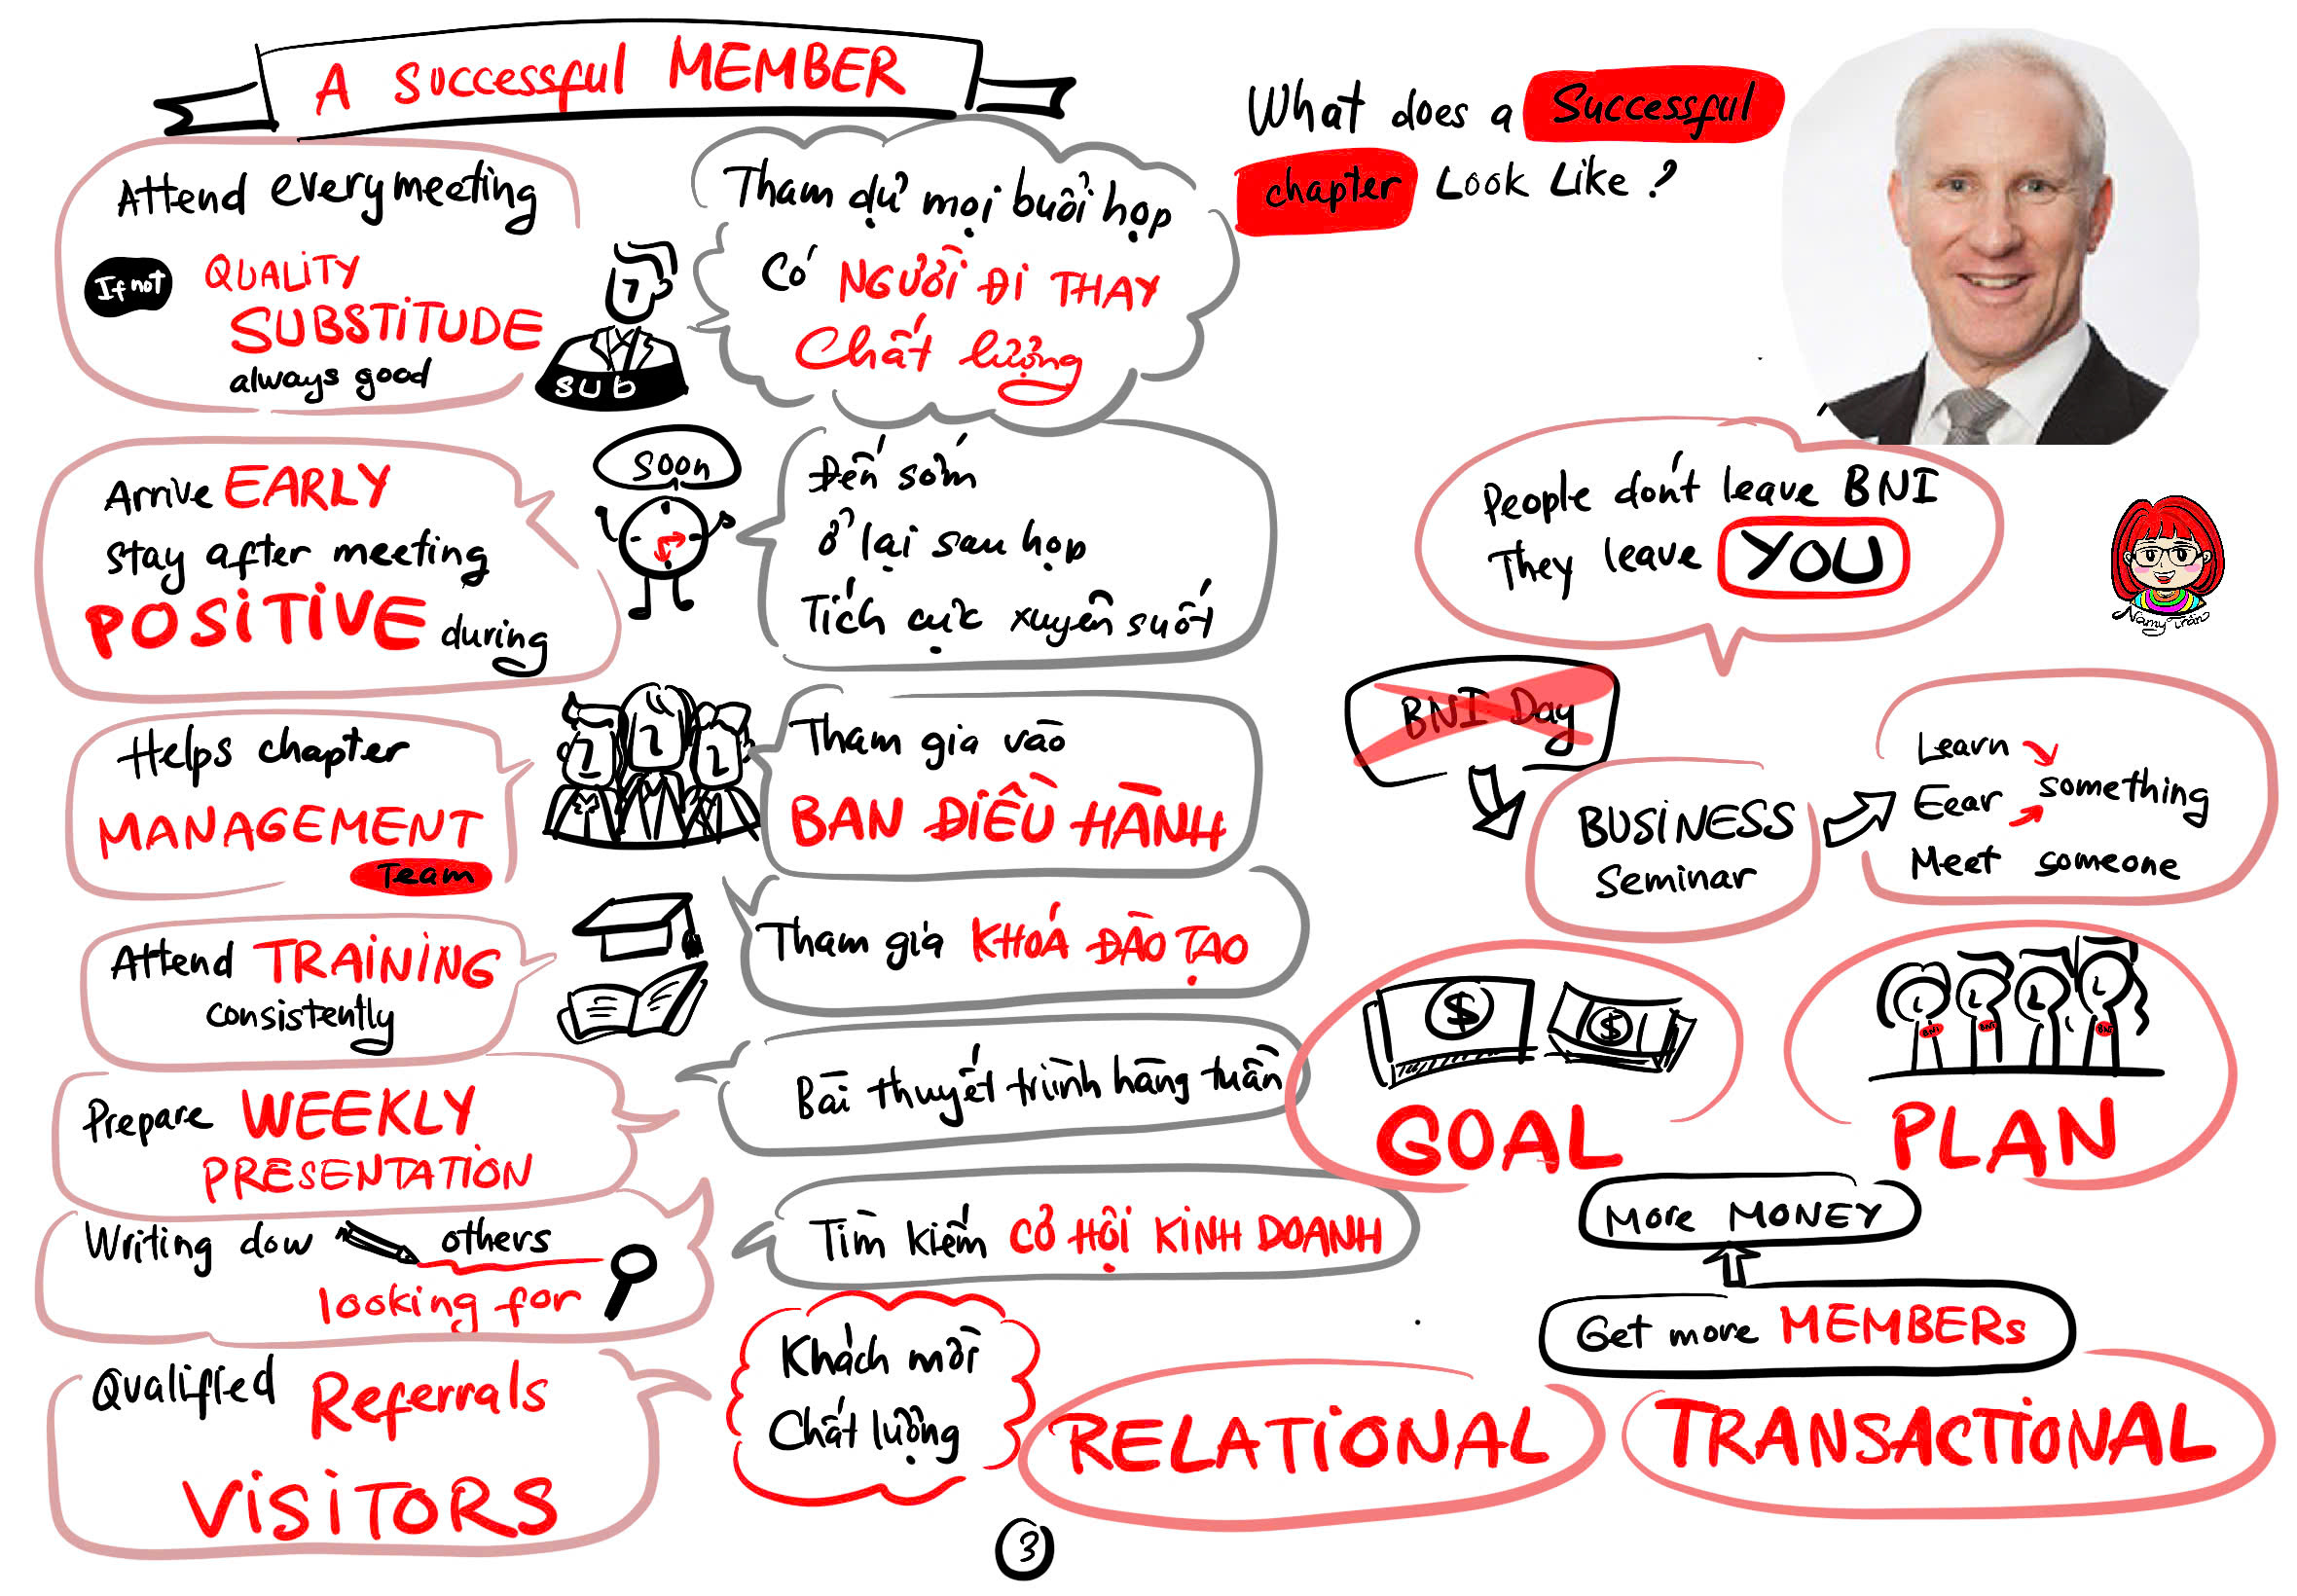 A Successful MEMBER
Attend every meeting
If not
QUALITY
SUBSTITUDE
always good
SUB
Tham dự mọi buổi họp
Có NGƯỜI ĐI THAY
Chất lượng
Arrive EARLY
stay after meeting
POSITIVE during
Soon
Đến sớm
ở lại sau họp
Tích cực xuyên suốt
Helps chapter
MANAGEMENT
Team
Tham gia vào
BAN ĐIỀU HÀNH
Attend TRAINING
consistently
Tham gia KHOÁ ĐÀO TẠO
Prepare WEEKLY
PRESENTATION
Bài thuyết trình hàng tuần
Writing dow others
looking for
Tìm kiếm CƠ HỘI KINH DOANH
Qualified Referrals
VISITORS
Khách mời
Chất lượng
What does a Successful
chapter Look Like ?
People don't leave BNI
They leave YOU
Namy Trân
BNI Day
BUSINESS
Seminar
Learn
Eear something
Meet someone
$ $
GOAL
BNI BNI BNI
PLAN
More MONEY
Get more MEMBERs
RELATIONAL
TRANSACTIONAL
3